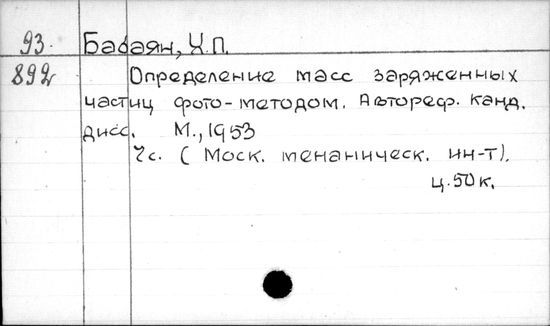 93. Бабаян, Х.П.
892
Определение масс заряженных
частиц фото-методом. Автореф. канд.
дисс. М., 1953
7с. (Моск. механическ. ин-т).
ц.50к.